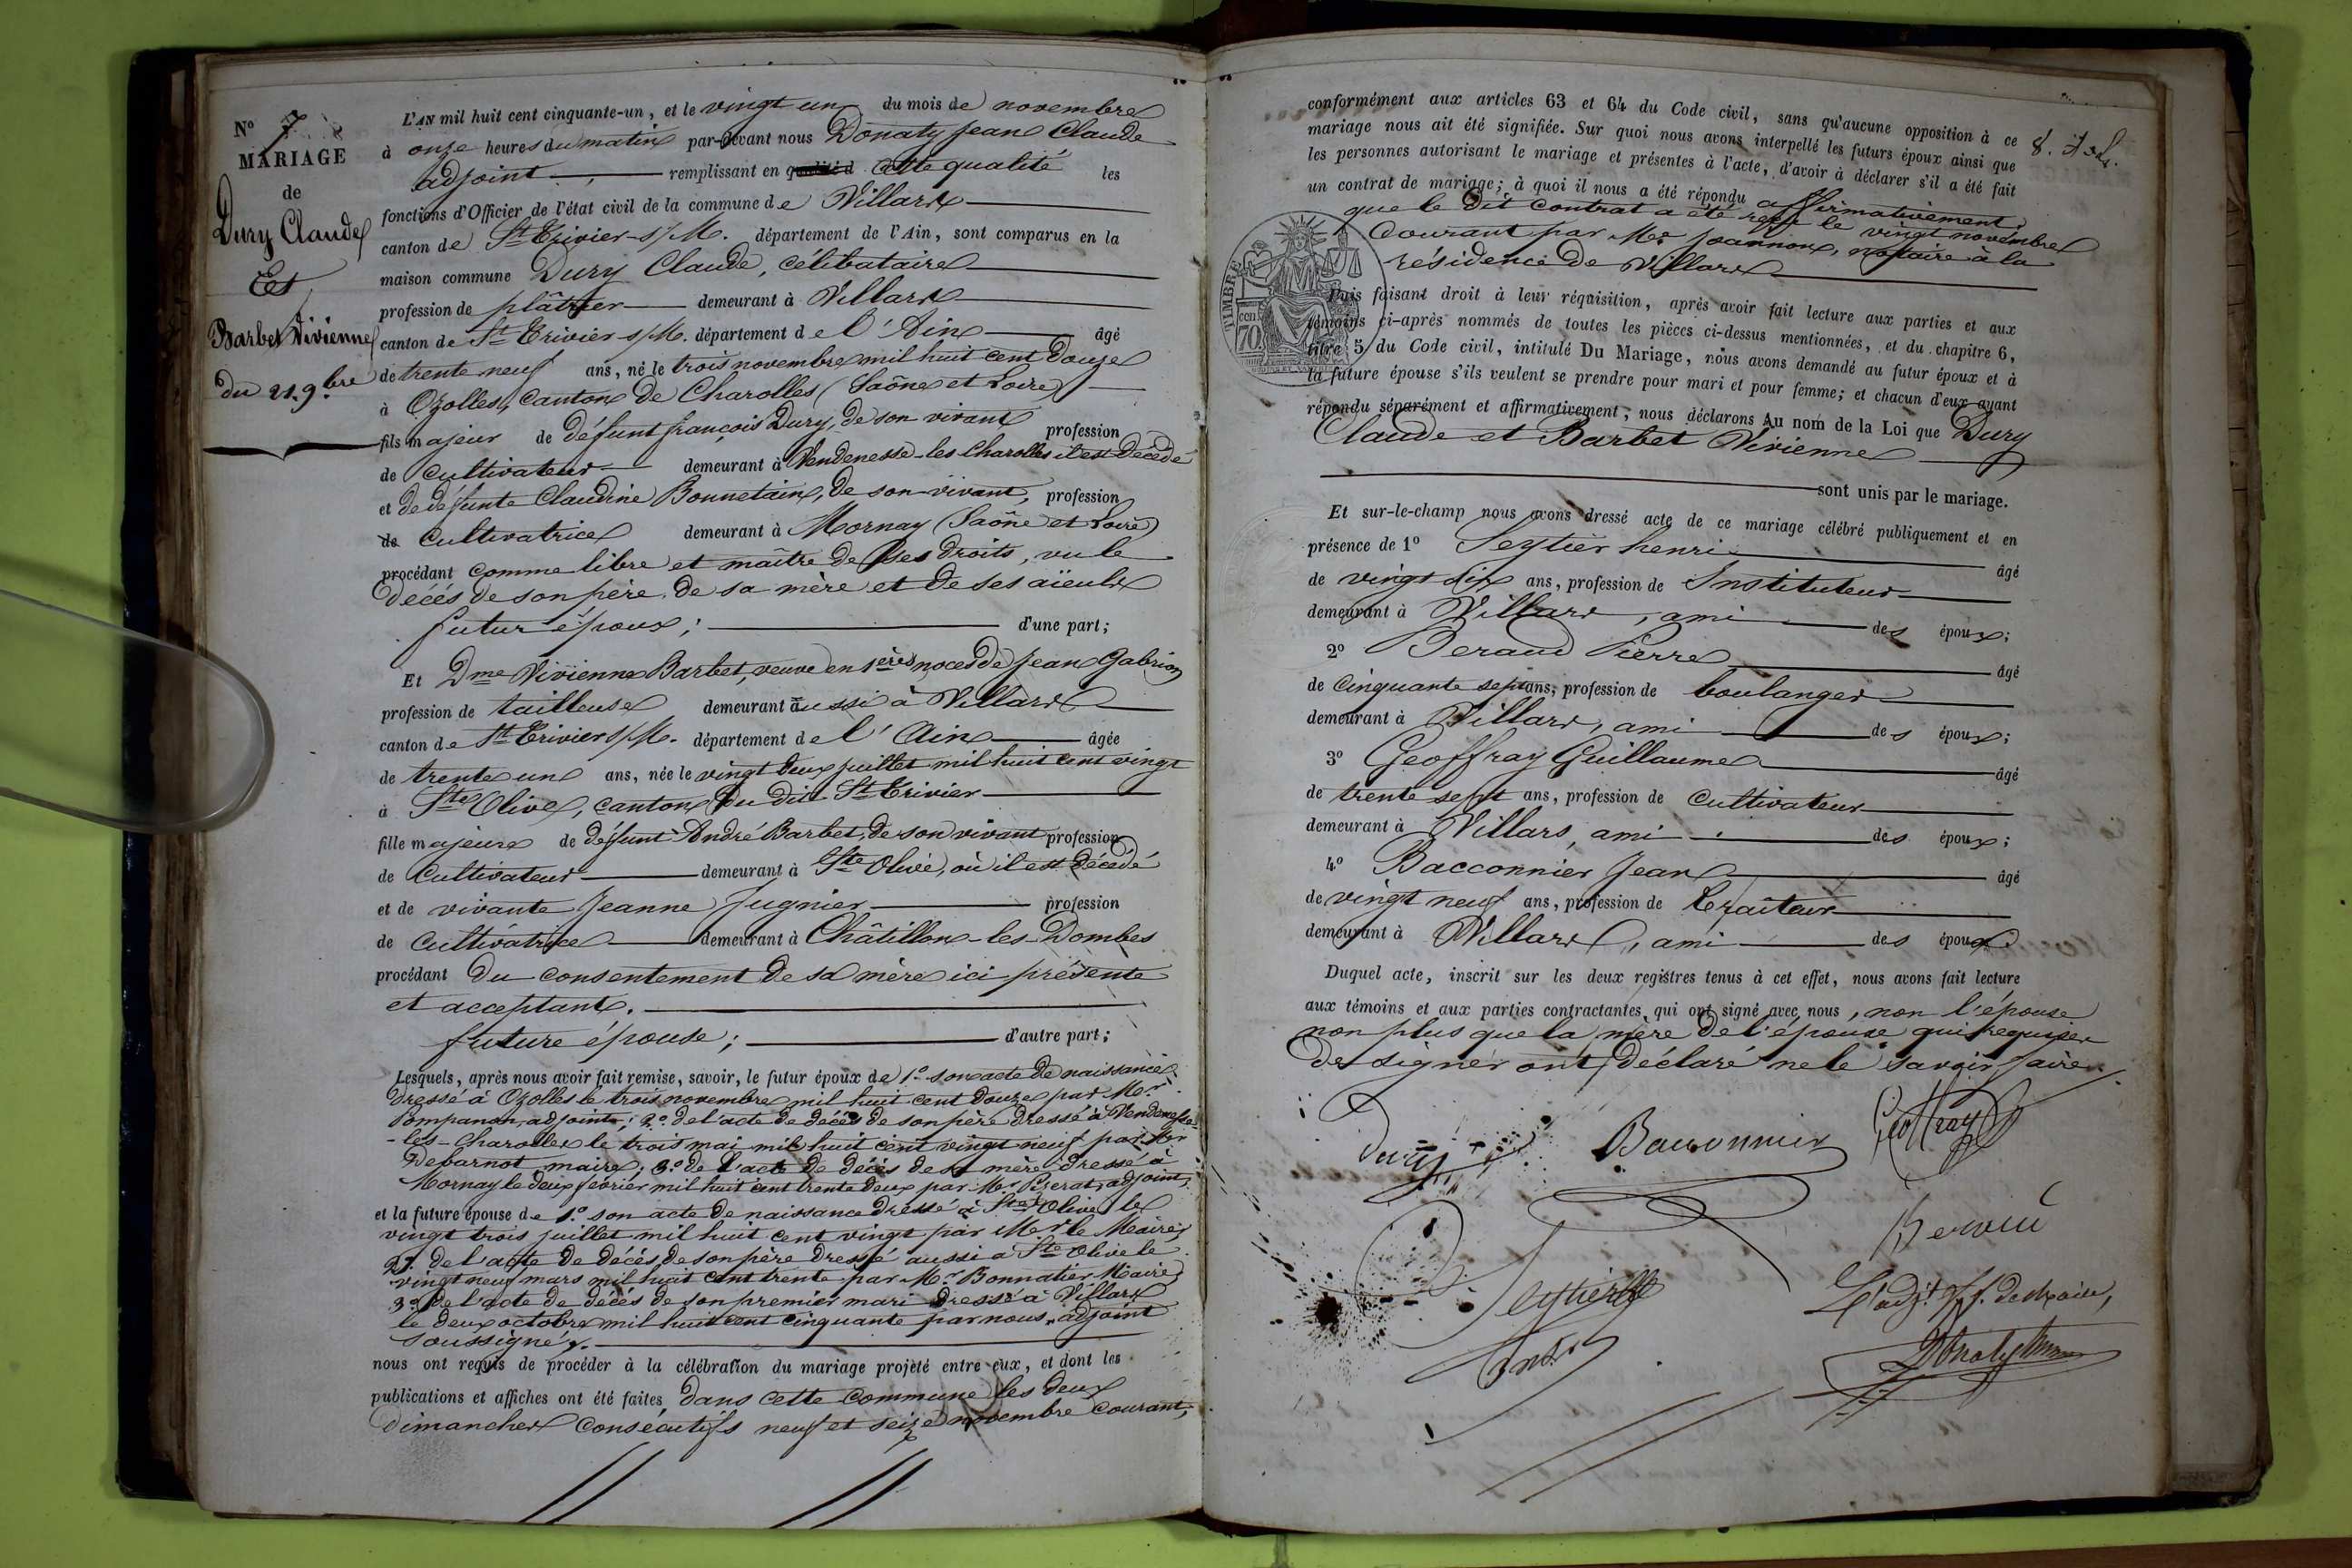 N° 7
MARIAGE
de
Dury Claude
Et
Barbet Vivienne
du 21. 9.bre
L'AN mil huit cent cinquante-un, et le vingt un du mois de novembre
à onze heures du matin par-devant nous Donaty Jean Claude
adjoint remplissant en cette qualité les
fonctions d'Officier de l'état civil de la commune de Villars
canton de St Trivier-s/M. département de l'Ain, sont comparus en la
maison commune Dury Claude, célibataire
profession de plâtrier demeurant à Villars
canton de St Trivier s/M. département de l'Ain âgé
de trente neuf ans, né le trois novembre mil huit cent douze
à Ozolles, canton de Charolles (Saône et Loire)
fils majeur de défunt françois Dury, de son vivant profession
de cultivateur demeurant à Vendenesse-les-Charolles il est décédé
et de défunte Claudine Bonnetain, de son vivant, profession
de cultivatrice demeurant à Mornay (Saône et Loire)
procédant comme libre et maître de ses droits, vu le
décès de son père, de sa mère et de ses aïeulx
futur époux; d'une part;
Et Dme Vivienne Barbet, veuve en 1ères noces de Jean Gabrion
profession de tailleuse demeurant aussi à Villars
canton de St Trivier s/M. département de l'Ain âgée
de trente un ans, née le vingt deux juillet mil huit cent vingt
à Ste Olive, canton du dit St Trivier
fille majeure de défunt André Barbet, de son vivant profession
de cultivateur demeurant à Ste Olive, où il est décédé
et de vivante Jeanne Jugnier profession
de cultivatrice demeurant à Châtillon-les-Dombes
procédant du consentement de sa mère ici présente
et acceptant.
future épouse; d'autre part;
Lesquels, après nous avoir fait remise, savoir, le futur époux de 1° son acte de naissance
dressé à Ozolles le trois novembre mil huit cent douze par Mr
Pompanon, adjoint; 2° de l'acte de décès de son père dressé à Vendenesse-
-les-Charolles le trois mai mil huit cent vingt neuf par Mr
Debarnot, maire; 3° de l'acte de décès de sa mère dressé à
Mornay le deux février mil huit cent trente deux par Mr adjoint,
et la future épouse de 1° son acte de naissance dressé à Ste Olive le
vingt trois juillet mil huit cent vingt par Mr le Maire;
2° de l'acte de décès de son père dressé aussi à Ste Olive le
vingt neuf mars mil huit cent trente par Mr Bonnatier Maire;
3° de l'acte de décès de son premier mari dressé à Villars
le deux octobre mil huit cent cinquante par nous, adjoint
soussigné.
nous ont requis de procéder à la célébration du mariage projeté entre eux, et dont les
publications et affiches ont été faites dans cette commune les deux
dimanches consécutifs neuf et seize novembre courant,
conformément aux articles 63 et 64 du Code civil, sans qu'aucune opposition à ce
mariage nous ait été signifiée. Sur quoi nous avons interpellé les futurs époux ainsi que
les personnes autorisant le mariage et présentes à l'acte, d'avoir à déclarer s'il a été fait
un contrat de mariage; à quoi il nous a été répondu affirmativement,
que le dit contrat a été reçu le vingt novembre
courant par Me Joannon, notaire à la
résidence de Villars
TIMBRE
70
Puis faisant droit à leur réquisition, après avoir fait lecture aux parties et aux
témoins ci-après nommés de toutes les pièces ci-dessus mentionnées, et du chapitre 6,
titre 5 du Code civil, intitulé Du Mariage, nous avons demandé au futur époux et à
la future épouse s'ils veulent se prendre pour mari et pour femme; et chacun d'eux ayant
répondu séparément et affirmativement, nous déclarons Au nom de la Loi que Dury
Claude et Barbet Vivienne
sont unis par le mariage.
Et sur-le-champ nous avons dressé acte de ce mariage célébré publiquement et en
présence de 1° Seytier henri âgé
de vingt dix ans, profession de Instituteur
demeurant à Villars, ami des époux;
2° Beraud Pierre âgé
de cinquante sept ans, profession de boulanger
demeurant à Villars, ami des époux;
3° Geoffray Guillaume âgé
de trente sept ans, profession de cultivateur
demeurant à Villars, ami des époux;
4° Bacconnier Jean âgé
de vingt neuf ans, profession de traiteur
demeurant à Villars, ami des époux.
Duquel acte, inscrit sur les deux registres tenus à cet effet, nous avons fait lecture
aux témoins et aux parties contractantes qui ont signé avec nous, non l'épouse
non plus que la mère de l'épouse qui requises
de signer ont déclaré ne le savoir faire.
Dury Bacconnier Geoffray
Seytier
L'adjt ff. de Maire,